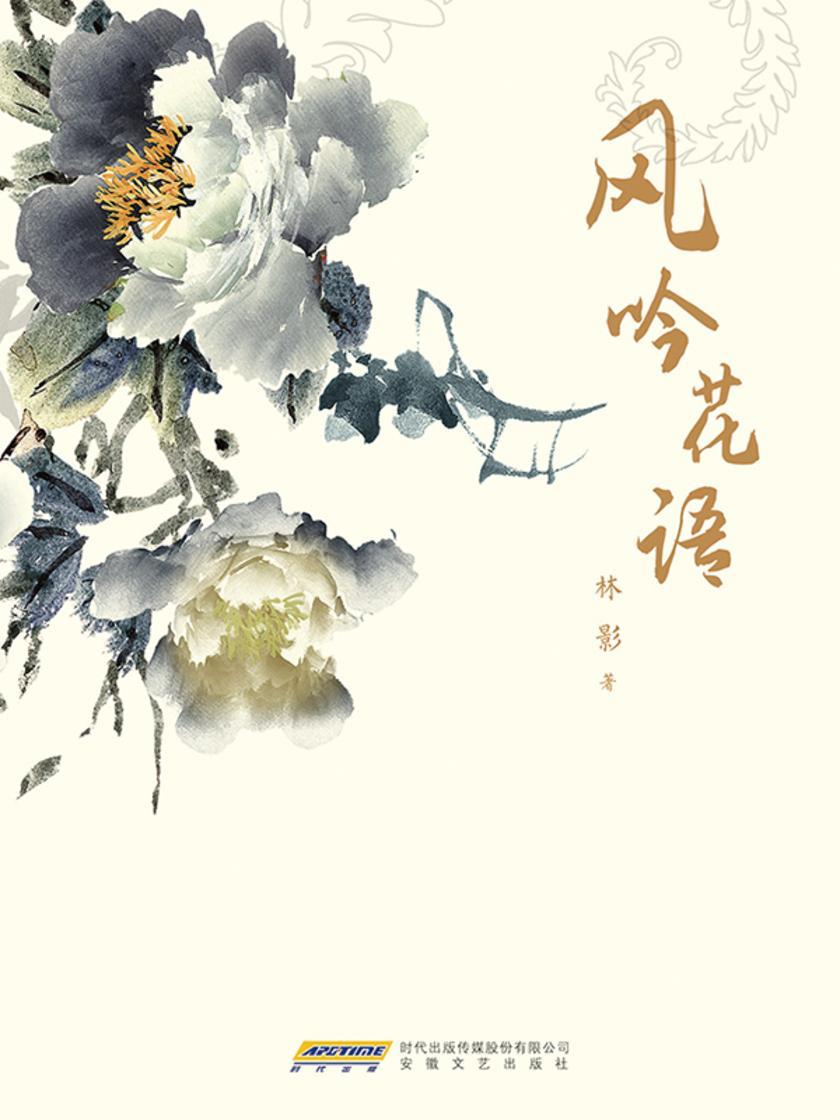 风吟花语
林影 著
APGTIME
时代出版
时代出版传媒股份有限公司
安徽文艺出版社